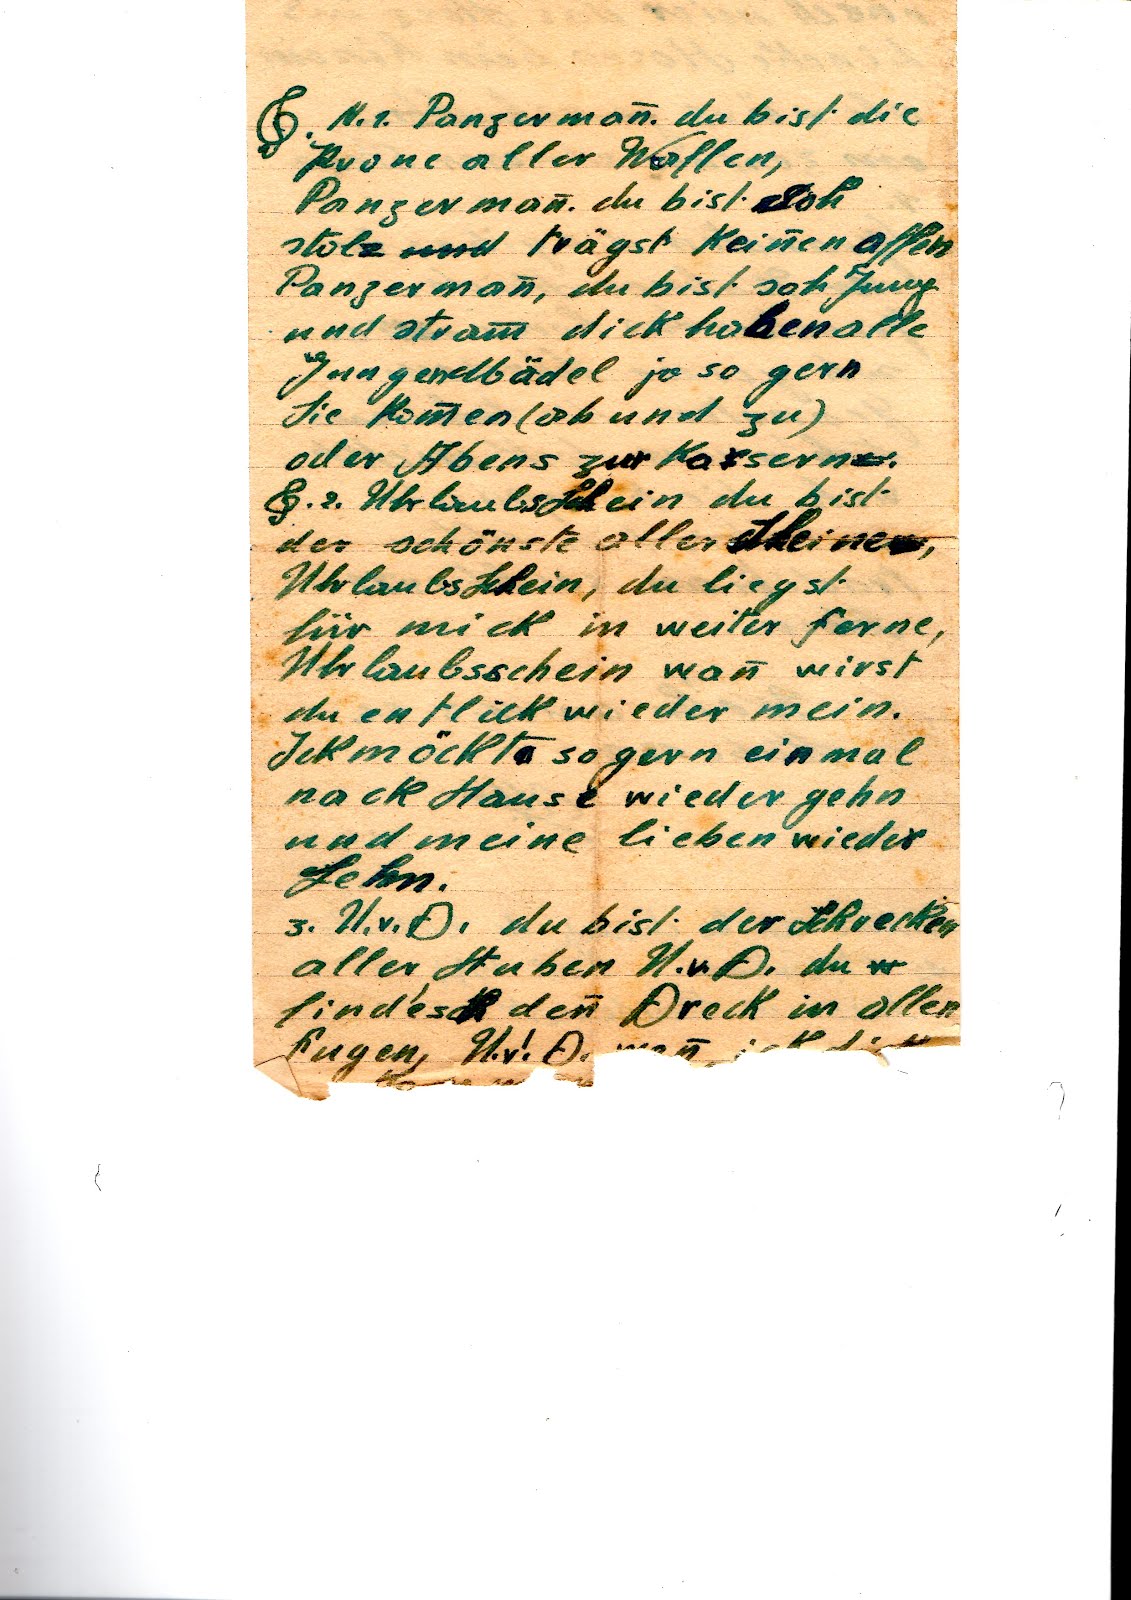 N. 1. Panzermañ. du bist die
Krone aller Waffen,
Panzermañ. du bist soh
stolz und trägst Keiñen affen
Panzermañ, du bist soh Jung
und stram̄ dick haben alle
Jungendbädel ja so gern
Sie Kom̄en (ab und zu)
oder Abens zur Kaserne.
2. Uhrlaubsschein du bist
der schönste aller Scheine,
Uhrlaubsschein, du liegst
für mick in weiter ferne,
Uhrlaubsschein wañ wirst
du entlick wieder mein.
Ick möckte so gern einmal
nack Hause wieder gehn
und meine lieben wieder
Sehn.
3. U.v.D. du bist der Schrecken
aller Stuben U.v.D. du
findesch deñ Dreck in allen
Fugen, U.v.D. wañ ick